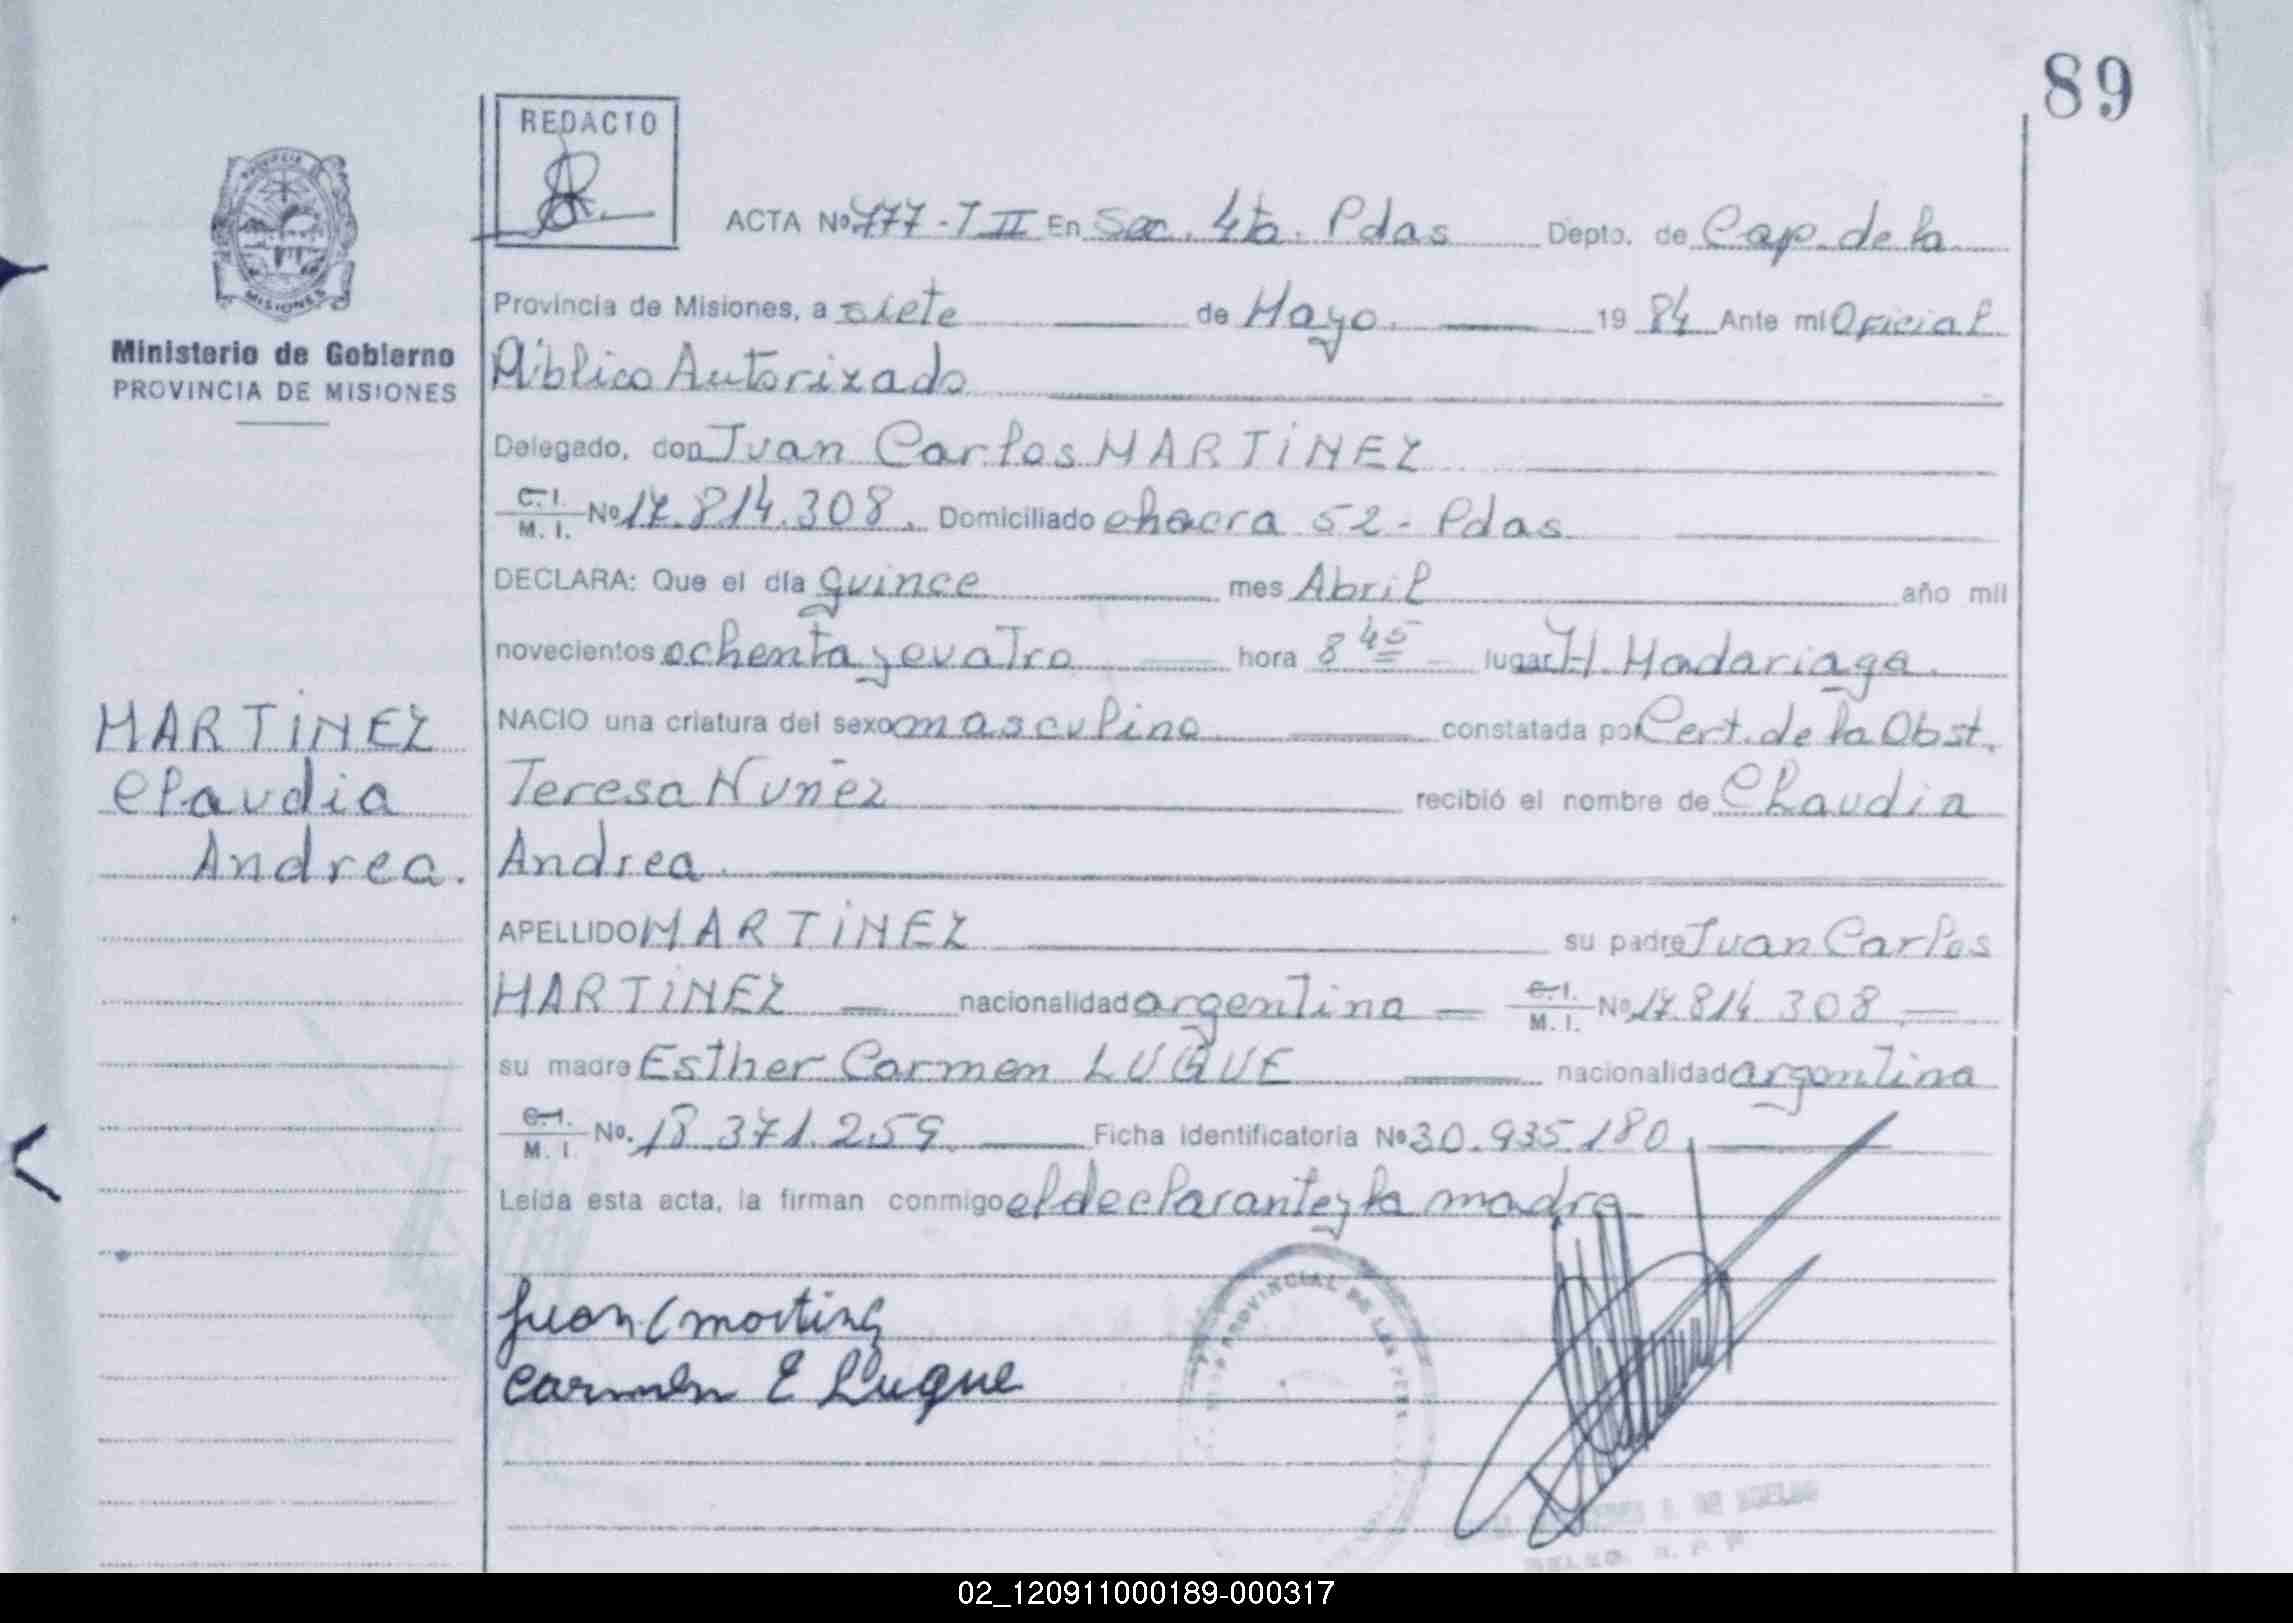 89
REDACTO
ACTA Nº 777-T II En Sec. 4ta. Pdas Depto. de Cap. de la
Provincia de Misiones, a siete de Mayo. 19 84 Ante mí Oficial
Ministerio de Gobierno
PROVINCIA DE MISIONES
Público Autorizado
Delegado, don Juan Carlos MARTINEZ
C.I. / M.I. Nº 17.814.308. Domiciliado chacra 52 - Pdas
DECLARA: Que el día quince mes Abril año mil
novecientos ochenta y cuatro hora 8 45 lugar H. Madariaga.
MARTINEZ
Claudia
Andrea.
NACIO una criatura del sexo masculino constatada por Cert. de la Obst.
Teresa Nuñez recibió el nombre de Claudia
Andrea.
APELLIDO MARTINEZ su padre Juan Carlos
MARTINEZ nacionalidad argentina C.I. / M.I. Nº 17.814.308
su madre Esther Carmen LUQUE nacionalidad argentina
C.I. / M.I. No. 18.371.259 Ficha identificatoria Nº 30.935.180
Leída esta acta, la firman conmigo el declarante y la madre
Juan C Martinez
Carmen E Luque
PROVINCIAL DE LAS PERS
02_120911000189-000317